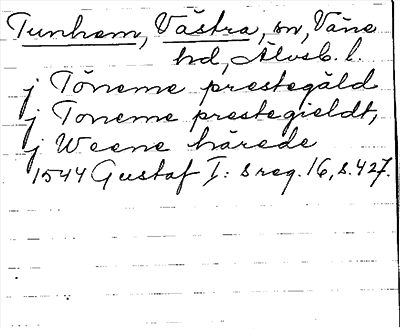 Tunhem, Västra, sn, Väne
hd, Älvsb. l.
j Töneme prestegäld
j Toneme prestegieldt,
j Weene härede
1544 Gustaf I: s reg. 16, s. 427.